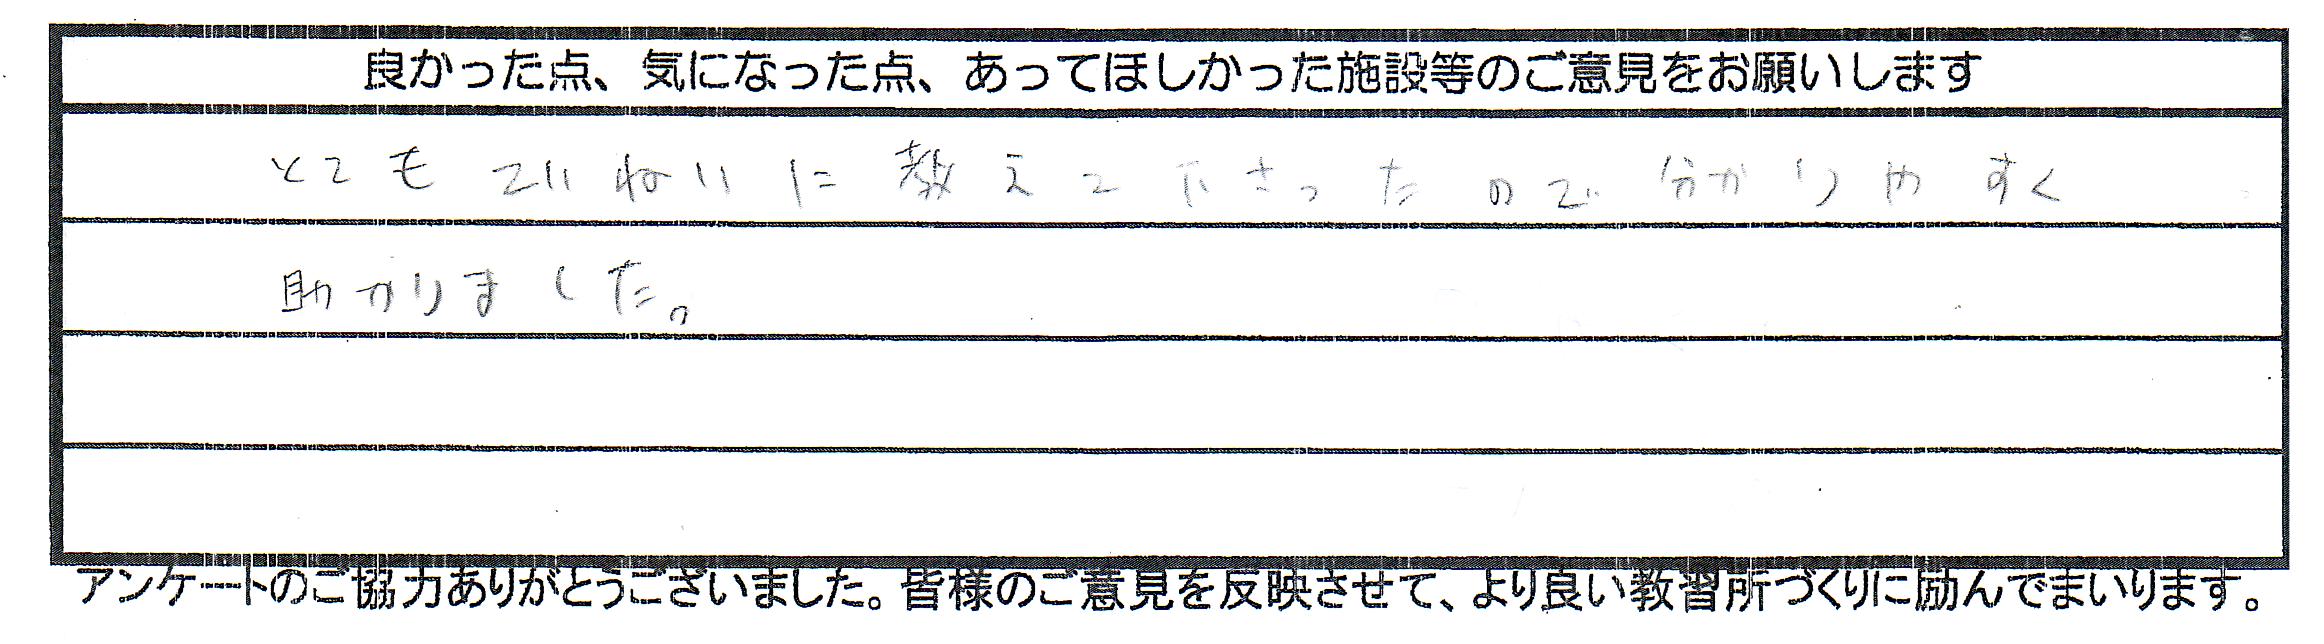 良かった点、気になった点、あってほしかった施設等のご意見をお願いします
とてもていねいに教えて下さったので分かりやすく
助かりました。
アンケートのご協力ありがとうございました。皆様のご意見を反映させて、より良い教習所づくりに励んでまいります。